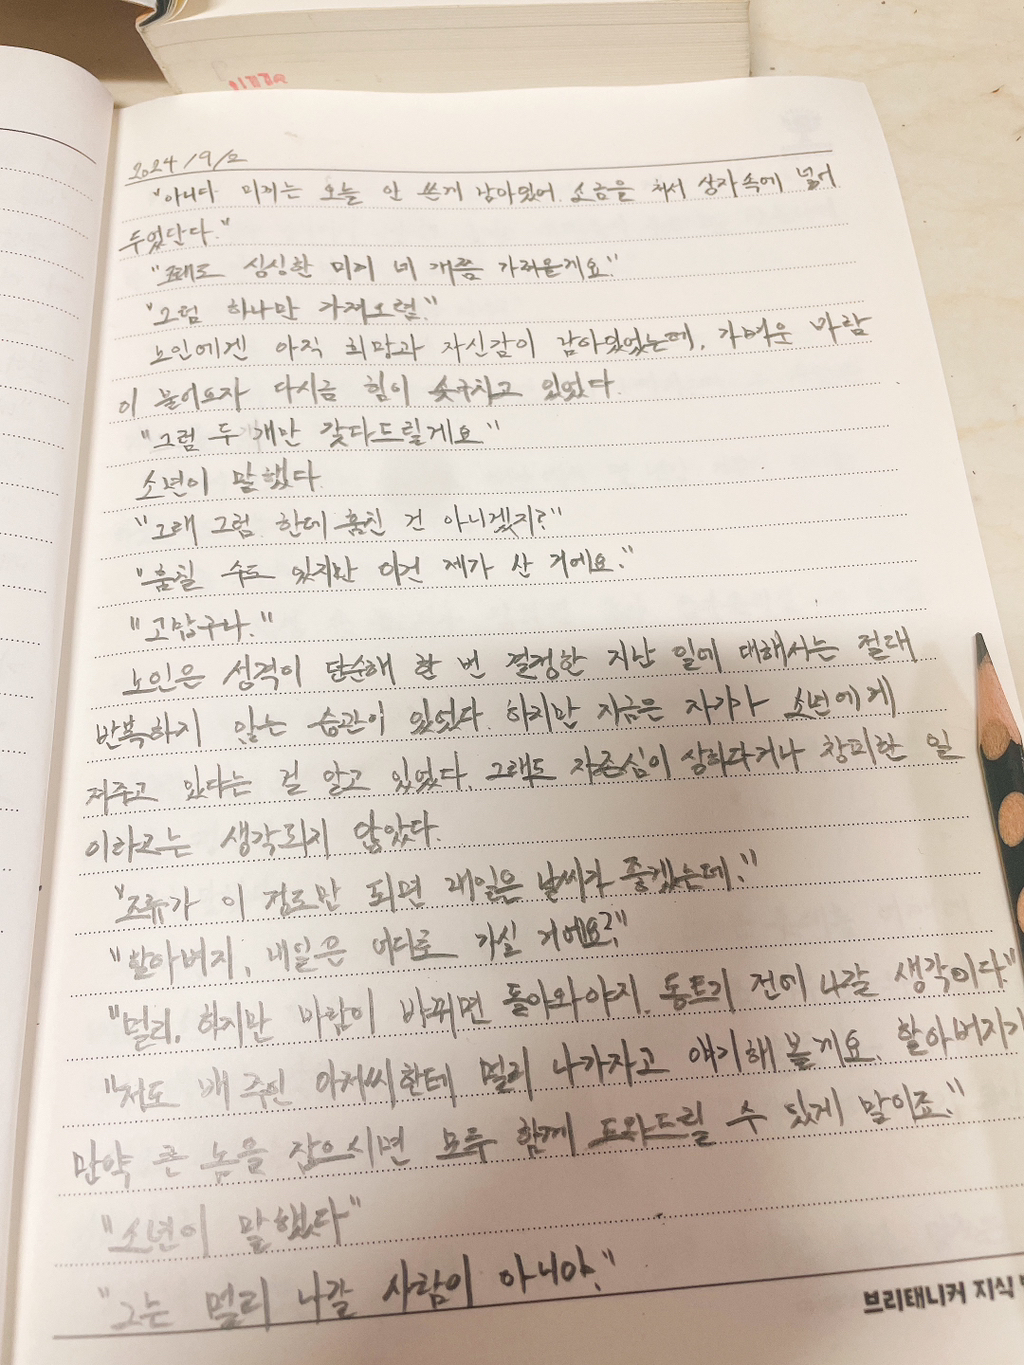 2024/9/2
"아니다 미끼는 오늘 안 쓴게 남아있어. 소금을 쳐서 상자속에 넣어
두었단다."
"제대로 싱싱한 미끼 네 개쯤 가져올게요."
"그럼 하나만 가져오렴."
노인에겐 아직 희망과 자신감이 남아있었는데, 가벼운 바람
이 불어오자 다시금 힘이 솟구치고 있었다.
"그럼 두 개만 갖다드릴게요"
소년이 말했다.
"그래 그럼. 한데 훔친 건 아니겠지?"
"훔칠 수도 있지만 이건 제가 산 거에요."
"고맙구나."
노인은 성격이 단순해 한 번 결정한 지난 일에 대해서는 절대
반복하지 않는 습관이 있었다. 하지만 지금은 자기가 소년에게
져주고 있다는 걸 알고 있었다. 그래도 자존심이 상하다거나 창피한 일
이라고는 생각되지 않았다.
"조류가 이 정도만 되면 내일은 날씨가 좋겠는데."
"할아버지, 내일은 어디로 가실 거에요?"
"멀리. 하지만 바람이 바뀌면 돌아와야지. 동트기 전에 나갈 생각이다."
"저도 배 주인 아저씨한테 멀리 나가자고 얘기해 볼게요. 할아버지가
만약 큰 놈을 잡으시면 모두 함께 도와드릴 수 있게 말이죠."
"소년이 말했다"
"그는 멀리 나갈 사람이 아니야."
브리태니커 지식